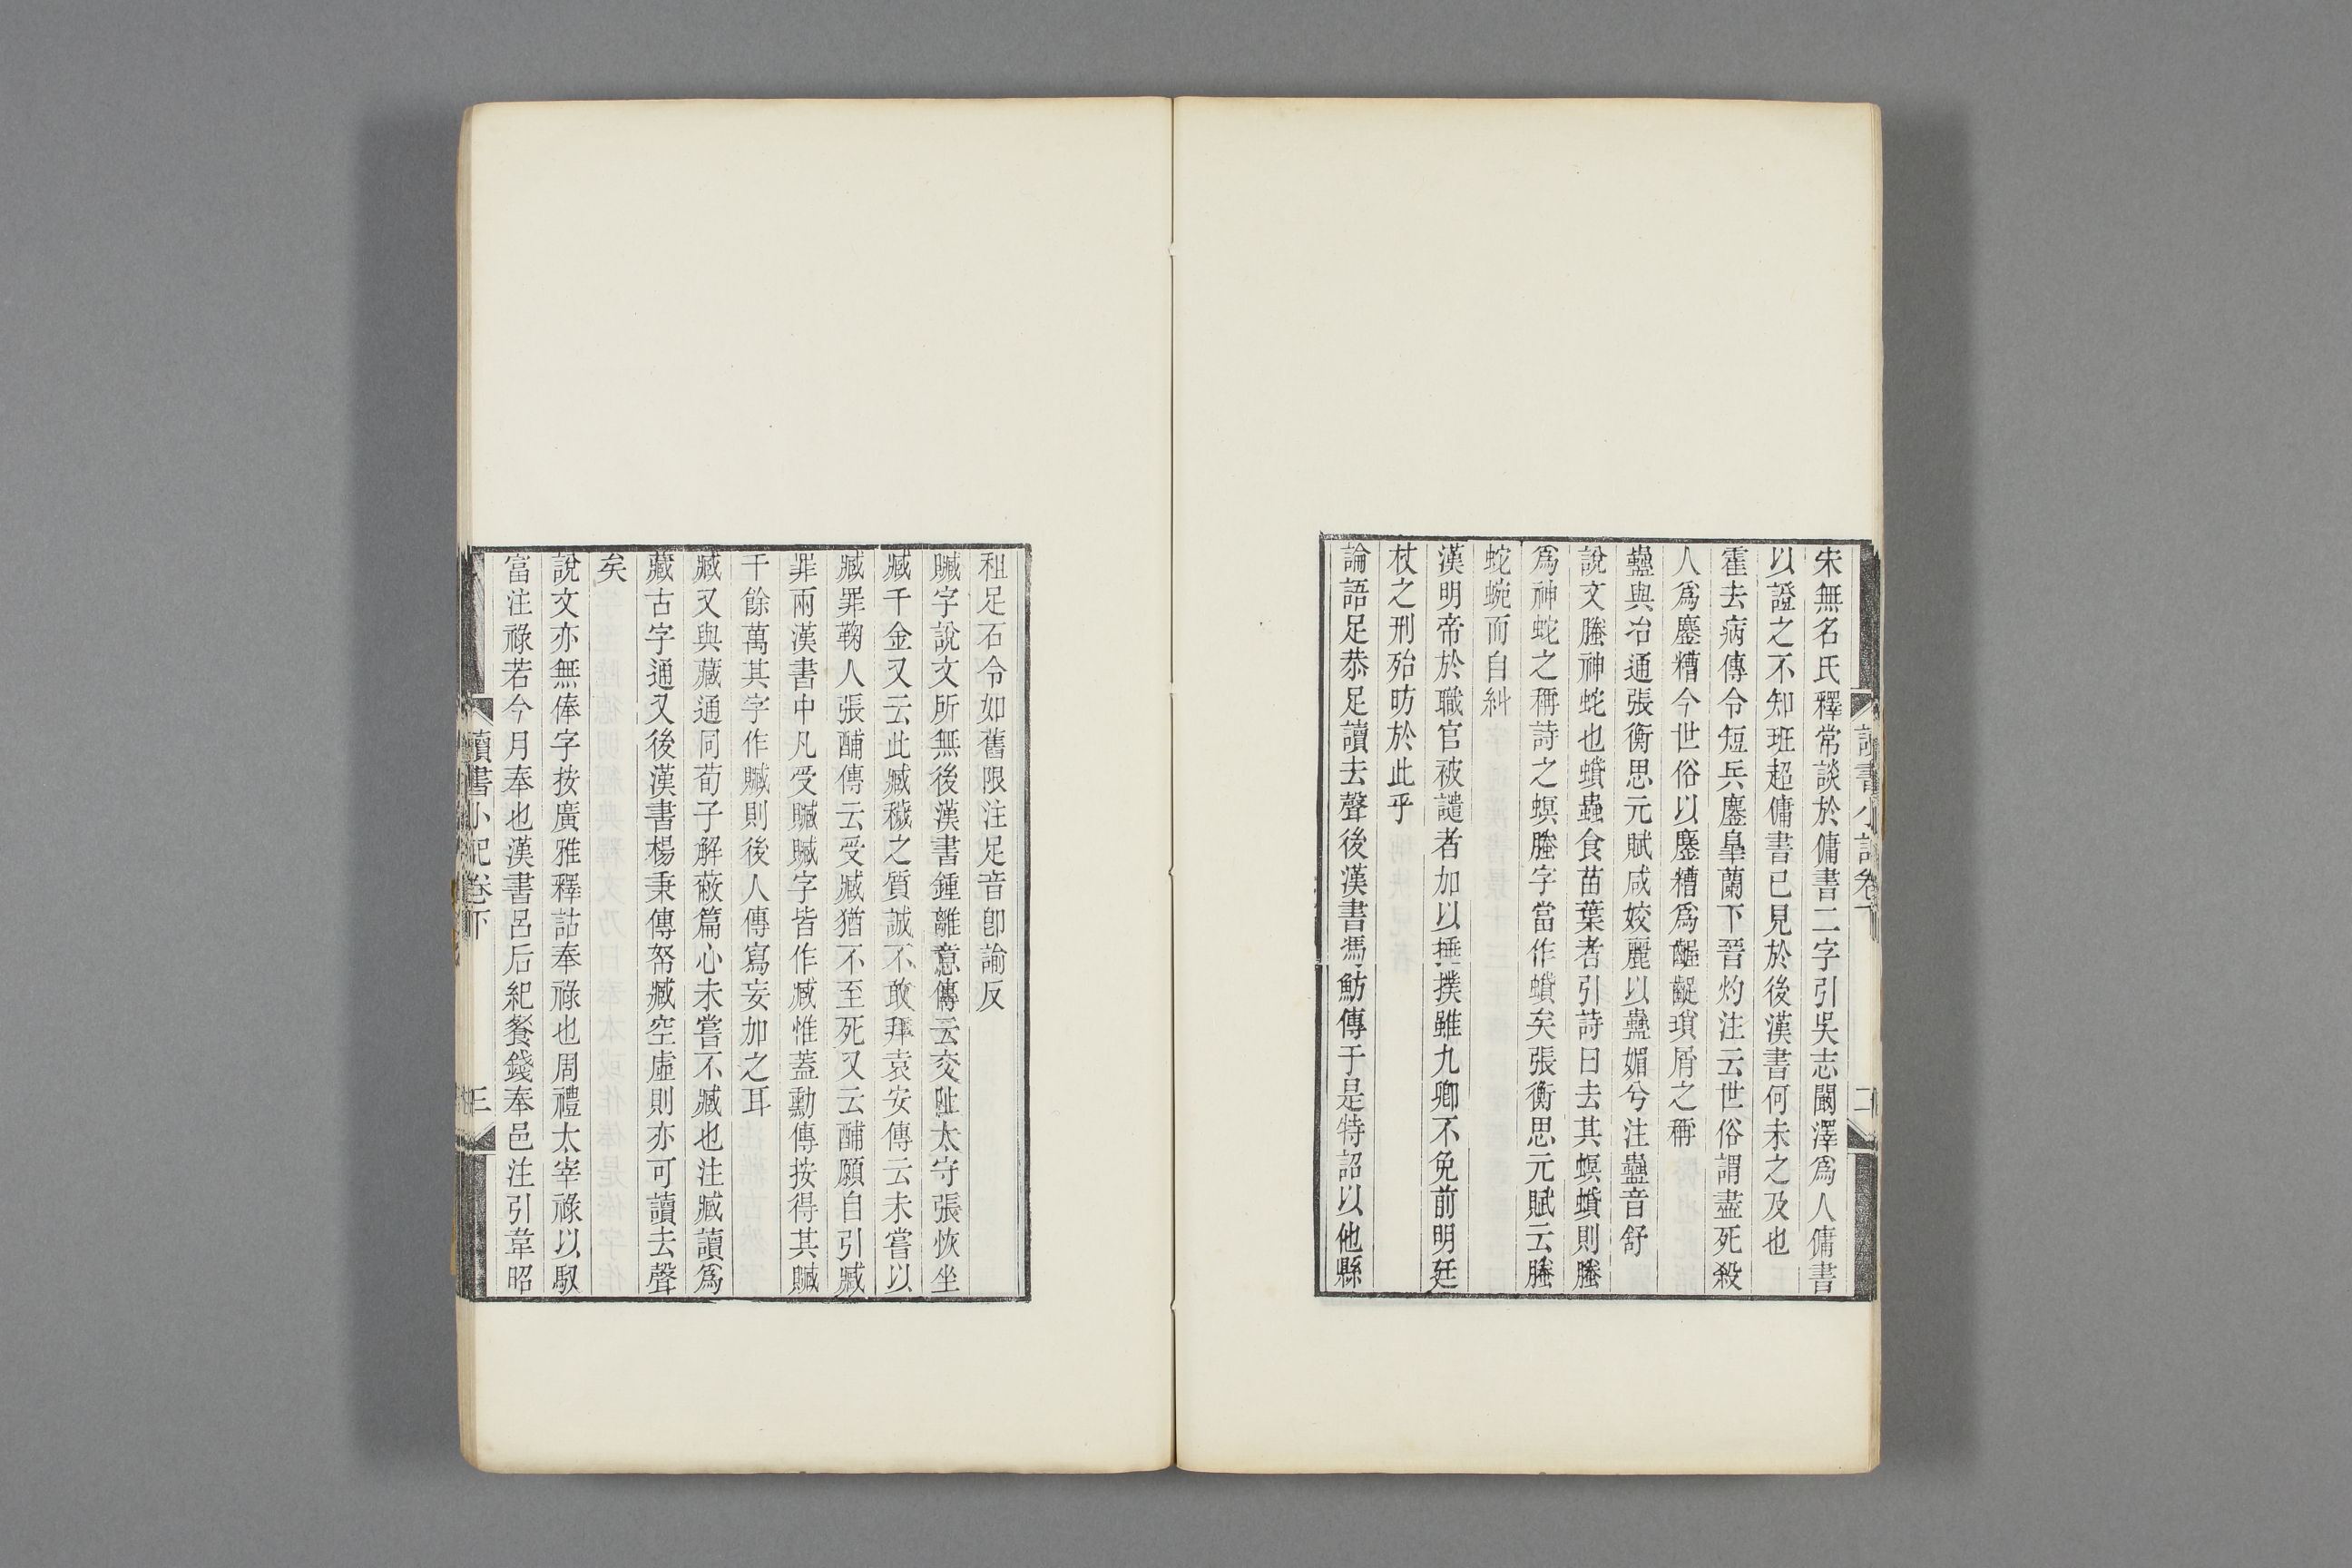 宋無名氏釋常談於傭書二字引吳志闞澤爲人傭書
以證之不知班超傭書已見於後漢書何未之及也
霍去病傳令短兵鏖皐蘭下晉灼注云世俗謂盡死殺
人爲鏖糟今世俗以鏖糟爲齷齪瑣屑之稱
蠱與冶通張衡思元賦咸姣麗以蠱媚兮注蠱音舒
說文螣神蛇也蟘蟲食苗葉者引詩曰去其螟蟘則螣
爲神蛇之稱詩之螟螣字當作蟘矣張衡思元賦云螣
蛇蜿而自糾
漢明帝於職官被譴者加以捶撲雖九卿不免前明廷
杖之刑殆昉於此乎
論語足恭足讀去聲後漢書馮魴傳于是特詔以他縣
讀書小記卷下
二
租足石令如舊限注足音卽諭反
贓字說文所無後漢書鍾離意傳云交阯太守張恢坐
臧千金又云此臧穢之質誠不敢拜袁安傳云未嘗以
臧罪鞠人張酺傳云受臧猶不至死又云酺願自引臧
罪兩漢書中凡受贓贓字皆作臧惟蓋勳傳按得其贓
千餘萬其字作贓則後人傳寫妄加之耳
臧又與藏通同荀子解蔽篇心未嘗不臧也注臧讀爲
藏古字通又後漢書楊秉傳帑臧空虛則亦可讀去聲
矣
說文亦無俸字按廣雅釋詁奉祿也周禮太宰祿以馭
富注祿若今月奉也漢書呂后紀餐錢奉邑注引韋昭
讀書小記卷下
三